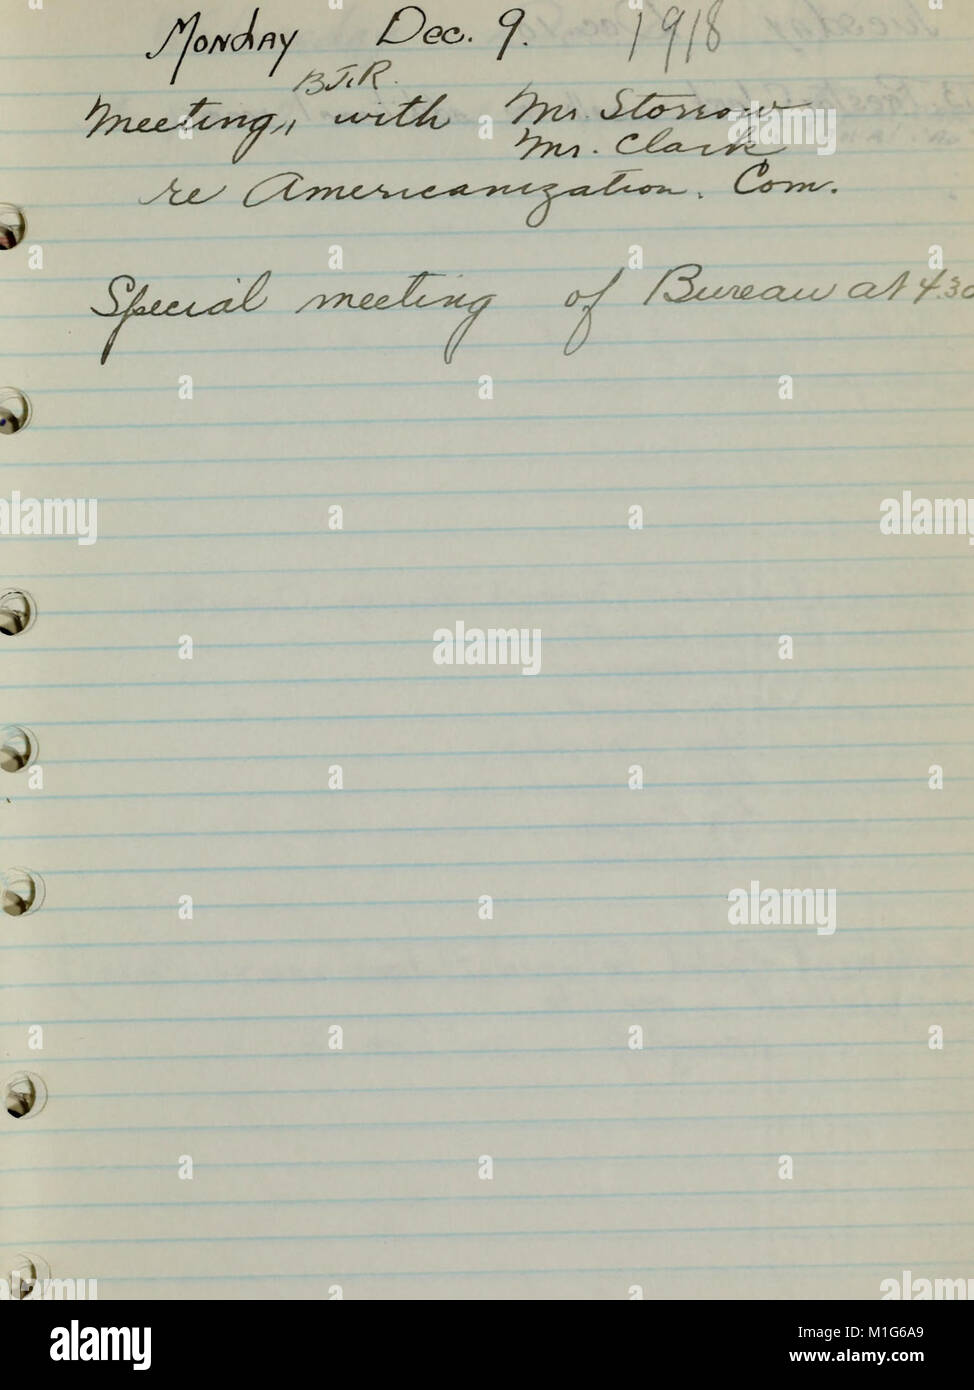 Monday Dec. 9. 1918
B.J.R.
Meeting, with Mr. Storrow
Mr. Clark
re Americanization. Com.
Special meeting of Bureau at 4.30
alamy
a
alamy stock photo
M1G6A9
www.alamy.com